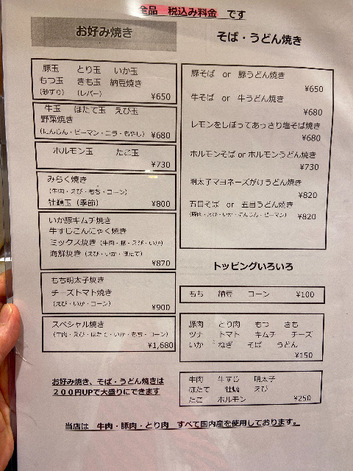 全品 税込み料金 です
お好み焼き
豚玉 とり玉 いか玉
もつ玉 きも玉 納豆焼き
(砂ずり) (レバー) ¥650
牛玉 ほたて玉 えび玉
野菜焼き
(にんじん・ピーマン・ニラ・もやし) ¥680
ホルモン玉 たこ玉
¥730
みらく焼き
(牛肉・えび・もち・コーン)
牡蠣玉 (季節) ¥800
いか豚キムチ焼き
牛すじこんにゃく焼き
ミックス焼き (牛肉・豚・えび・いか)
海鮮焼き (えび・いか・ほたて)
¥870
もち明太子焼き
チーズトマト焼き
(えび・いか・コーン) ¥900
スペシャル焼き
(牛肉・えび・ほたて・いか・もち・コーン)
¥1,680
お好み焼き、そば・うどん焼きは
200円UPで大盛りにできます
そば・うどん焼き
豚そば or 豚うどん焼き
¥650
牛そば or 牛うどん焼き
¥680
レモンをしぼってあっさり塩そば焼き
¥680
ホルモンそば or ホルモンうどん焼き
¥730
明太子マヨネーズがけうどん焼き
¥820
五目そば or 五目うどん焼き
(豚肉・えび・いか・にんじん・ピーマン) ¥820
トッピングいろいろ
もち 納豆 コーン ¥100
豚肉 とり肉 もつ きも
ツナ トマト キムチ チーズ
いか ねぎ そば うどん
¥150
牛肉 牛すじ 明太子
ほたて 牡蠣 えび
たこ ホルモン ¥250
当店は 牛肉・豚肉・とり肉 すべて国内産を使用しております。